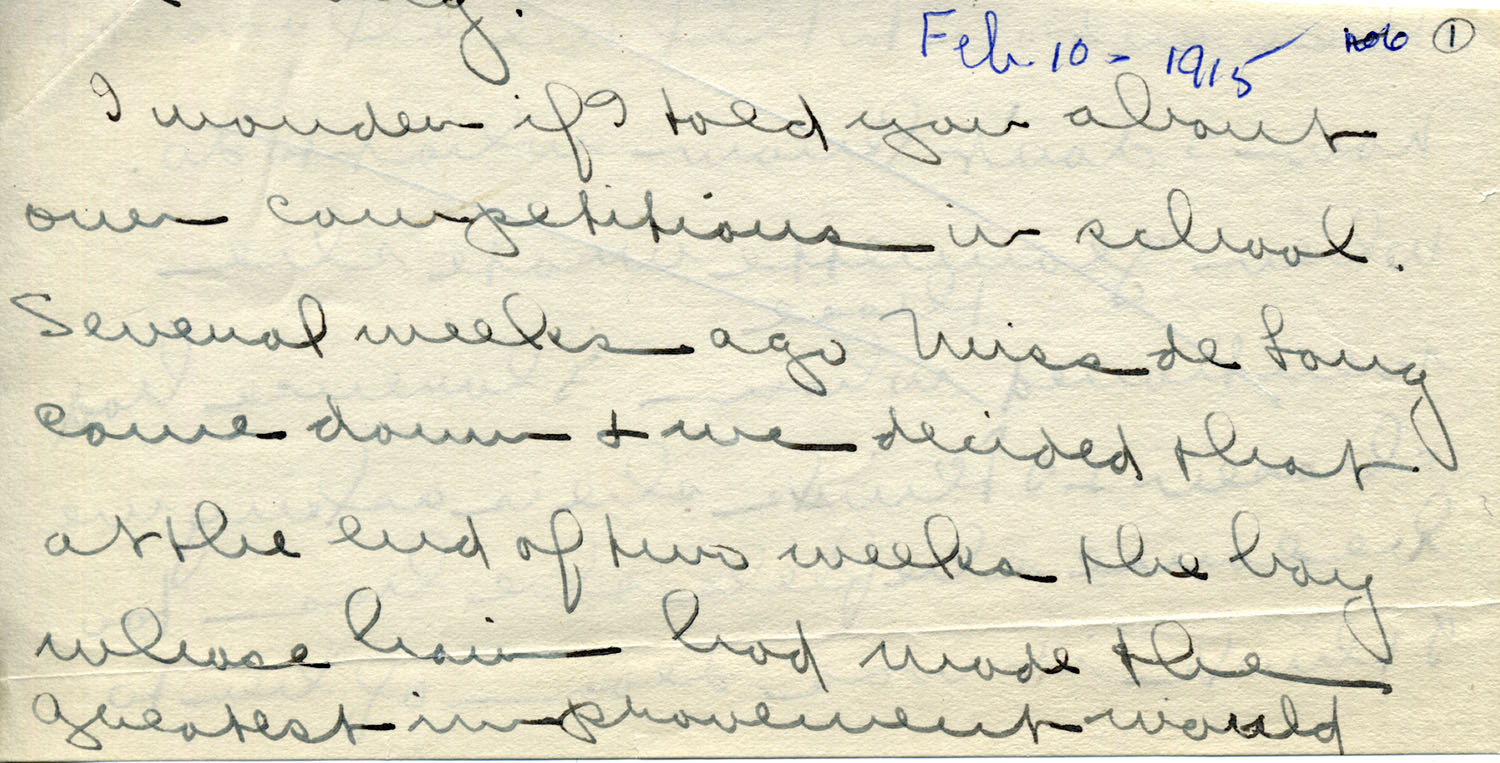 Feb. 10 - 1915 ①
I wonder if I told you about
our competitions in school.
Several weeks ago Miss de Long
came down + we decided that
at the end of two weeks the boy
whose hair had made the
greatest improvement would